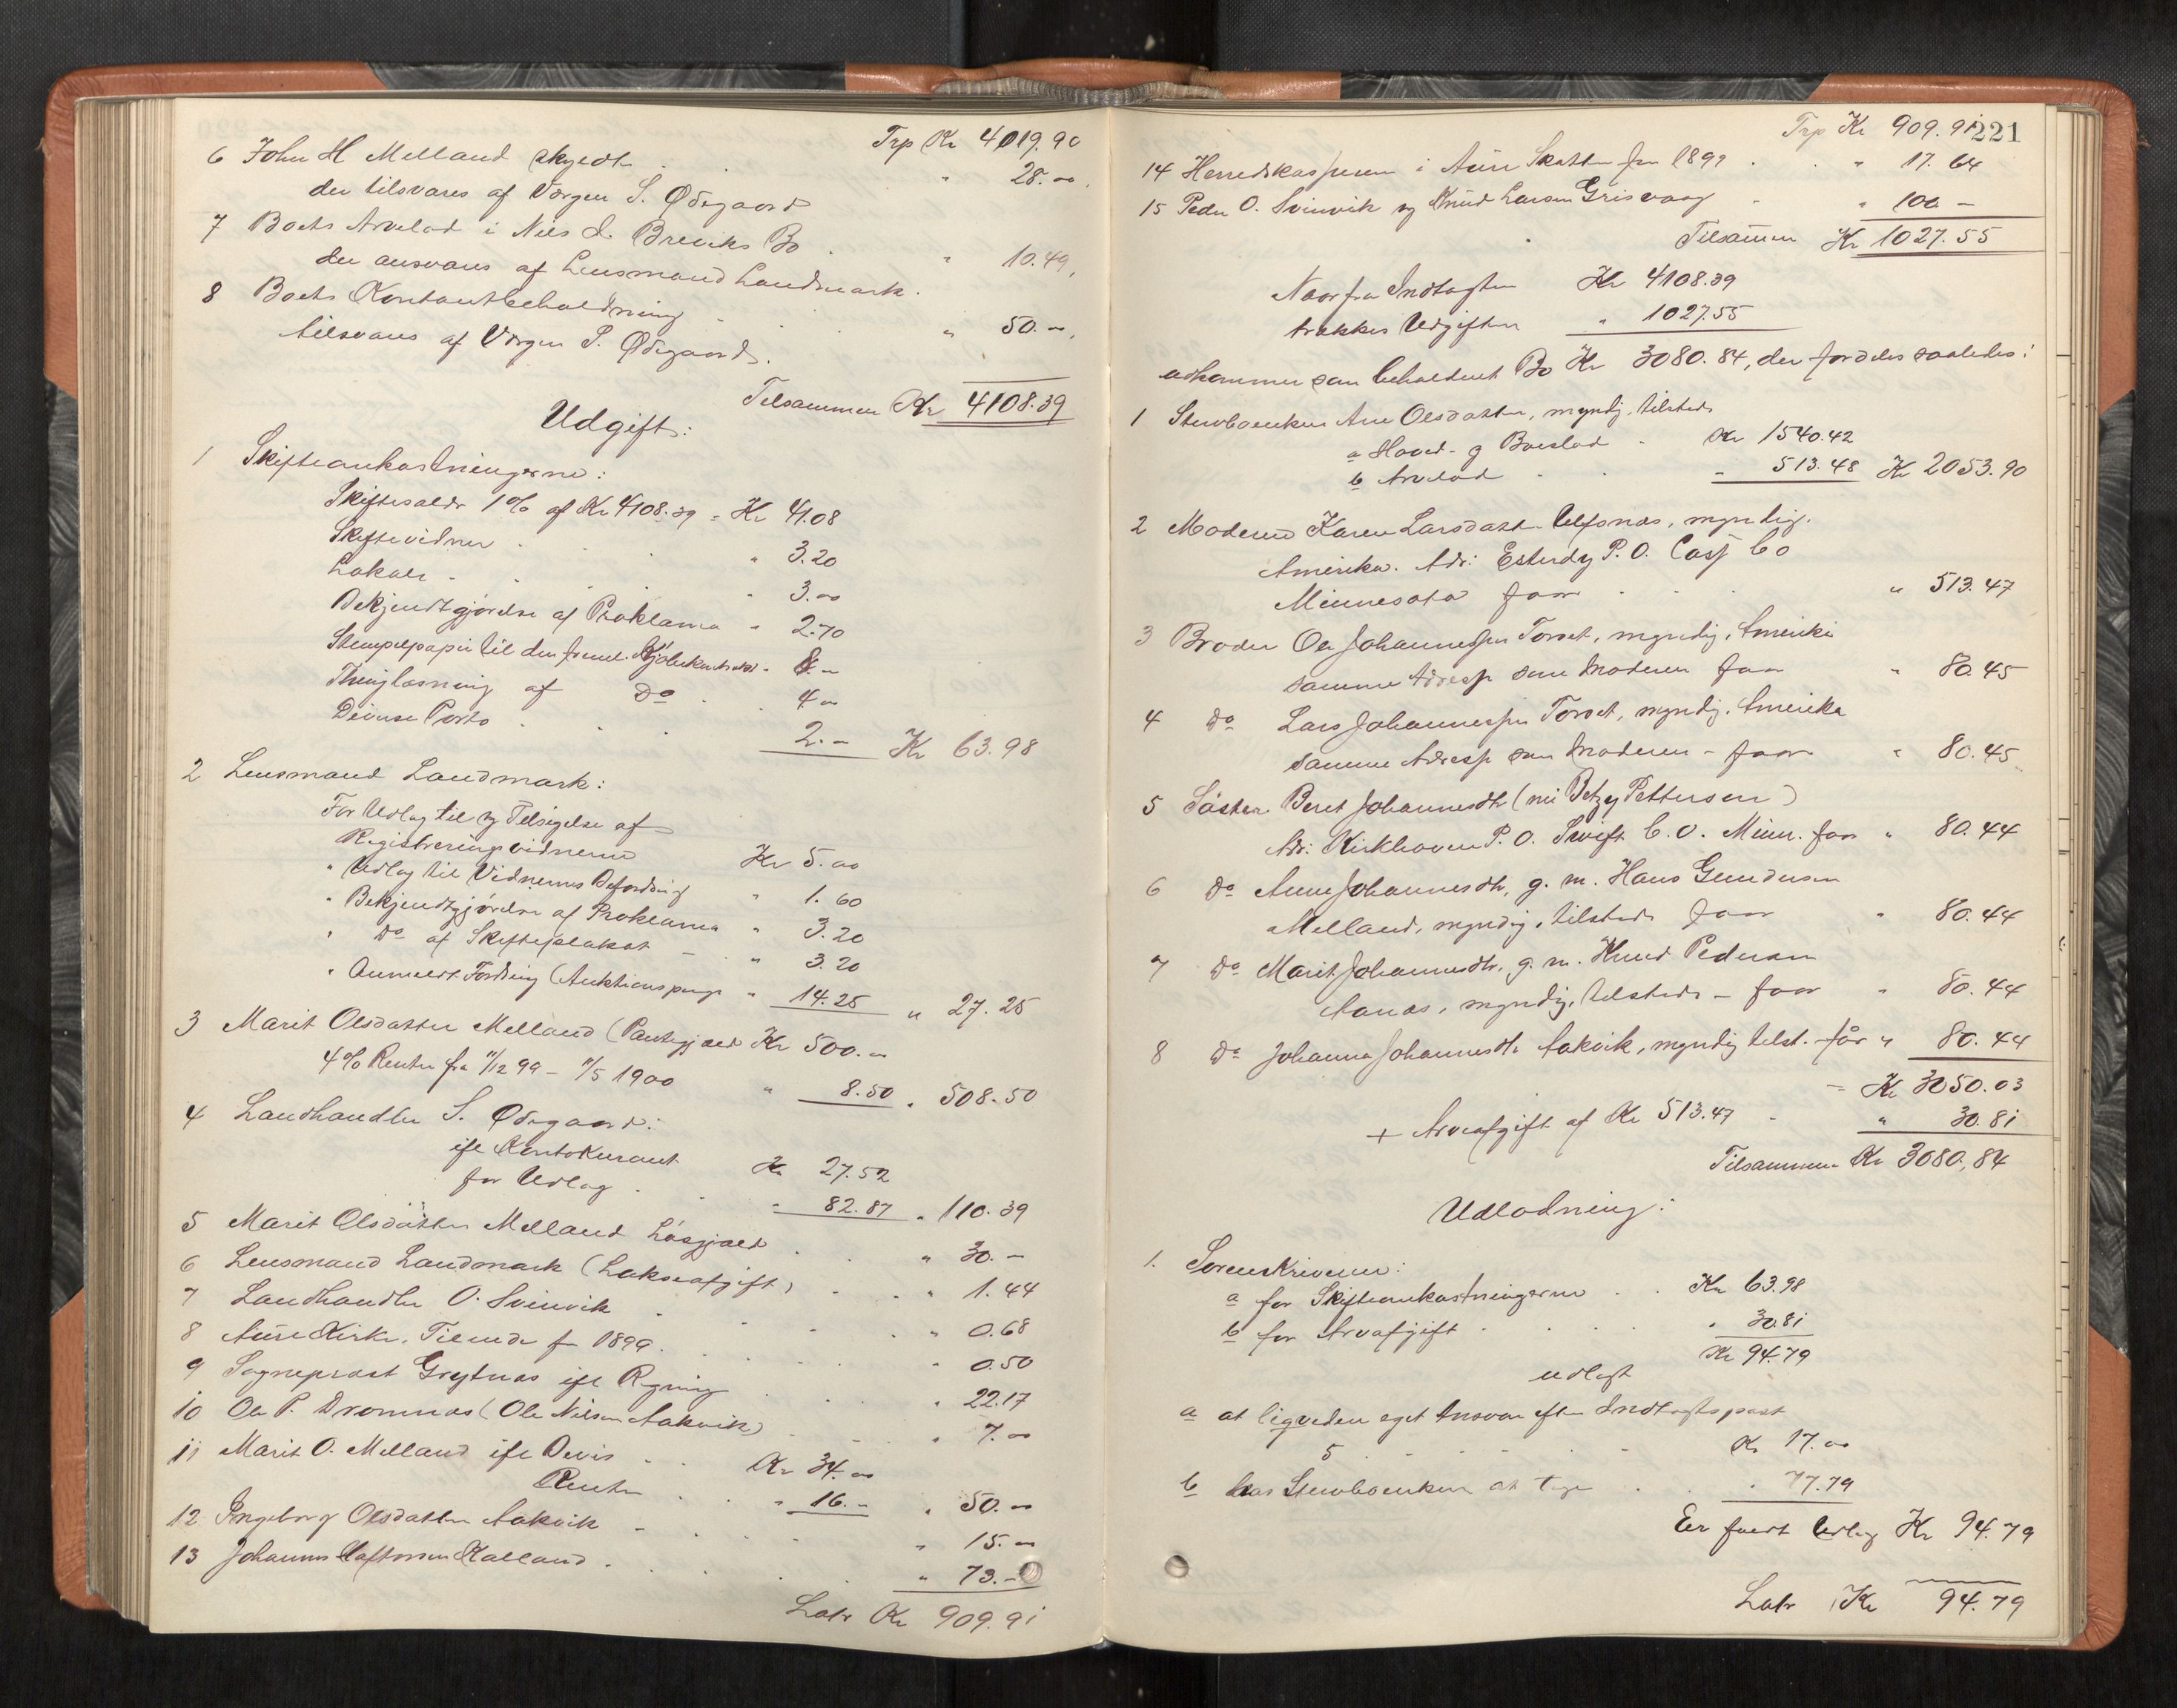 Trp Kr 4019.90
6 John H Melland skyldte . " 28.00
der tilsvares af Værgen S. Ødegaard
7 Boets Arvelod i Nils L. Breviks Bo . " 10.49
der ansvares af Lensmand Landmark.
8 Boets Kontantbeholdning . . " 50.00
tilsvares af Værgen S. Ødegaard.
Tilsammen Kr 4108.39
Udgift:
1 Skifteomkostningerne:
Skiftesalær 1% af Kr 4108.39 = Kr 41.08
Skiftevidner . . " 3.20
Lokale . . " 3.00
Bekjendtgjørelse af Proklama " 2.70
Stempelpapir til den freml. Kjøbekontrakt " 8.-
Thinglæsning af Do . . 4.00
Diverse Porto . . . 2.- Kr 63.98
2 Lensmand Landmark:
For Udlæg til og Tilsigelse af
Registreringsvidnerne Kr 5.00
" Udlæg til Vidnernes Befordring " 1.60
" Bekjendtgjørelse af Proklama " 3.20
" Do af Skifteplakat - " 3.20
" Anmeldt Fordring (Auktionspenge " 14.25 " 27.25
3 Marit Olsdatter Melland (Pantegjæld Kr 500.-
4% Renter fra 11/12 99 - 11/5 1900 " 8.50 " 508.50
4 Landhandler S. Ødegaard:
ifl Kontokurant Kr 27.52
for Udlæg . . " 82.87 " 110.39
5 Marit Olsdatter Melland Løsgjæld . " 30.-
6 Lensmand Landmark (Lakseafgift) . . " 1.44
7 Landhandler O. Svinvik . . . " 0.68
8 Aure Kirke. Tiende for 1899 . . . " 0.50
9 Sogneprest Grytnæs ifl Regning . . " 22.17
10 Ole P. Dromnæs (Ole Nilsen Aakvik) . . " 7.00
11 Marit O. Melland ifl Bevis . . Kr 34.00
Renter . . " 16.- " 50.00
12 Ingeborg Olsdatter Aakvik - . . . " 15.00
13 Johannes Kalland . . . . " 73.-
Latr Kr 909.91
Trp Kr 909.91 221
14 Herredskassereren i Aure Skatter for 1899 . . " 17.64
15 Peder O. Svinvik og Knud Larsen Grisvaag . " 100 -
Tilsammen Kr 1027.55
Naar fra Indtægten Kr 4108.39
trækkes Udgiften " 1027.55
udkommer som beholdent Bo Kr 3080.84, der fordeles saaledes:
1 Stervboenken Ane Olsdatter, myndig, tilstede
a Hoved- og Boeslod . Kr 1540.42
b Arvelod . . " 513.48 Kr 2053.90
2 Moderen Karen Larsdatter Ulfsnæs, myndig.
Amerika. Adr: Esterdy P.O. Cass Co
Minnesota faar . . . " 513.47
3 Broder Ole Johannessen Torset, myndig, Amerika
samme Adresse som Moderen faar " 80.45
4 Do Lars Johannessen Torset, myndig, Amerika
samme Adresse som Moderen - faar " 80.45
5 Søster Beret Johannesdtr (nu Betzy Pettersen)
Adr. Kirkhoven P.O. Swift C.O. Minn. faar " 80.44
6 Do Anne Johannesdtr, g. m. Hans Gundersen
Melland, myndig, tilstede faar " 80.44
7 Do Marit Johannesdtr, g. m. Knud Pedersen
Aanæs, myndig, tilstede - faar " 80.44
8 Do Johanna Johannesdtr Aakvik, myndig tilst. får " 80.44
= Kr 3050.03
+ Arveafgift af Kr 513.47 . " 30.81
Tilsammen Kr 3080,84
Udlodning:
1. Sorenskriveren:
a for Skifteomkostningerne . . Kr 63.98
b for Arveafgift . . . . " 30.81
Kr 94.79
udlagt
a at ligvedere eget Ansvar efter Indtægtspost
5 . . . . - Kr 17.00
b hos Stervboenken at tage . . " 77.79
Er fuldt Udlæg Kr 94.79
Latr Kr 94.79